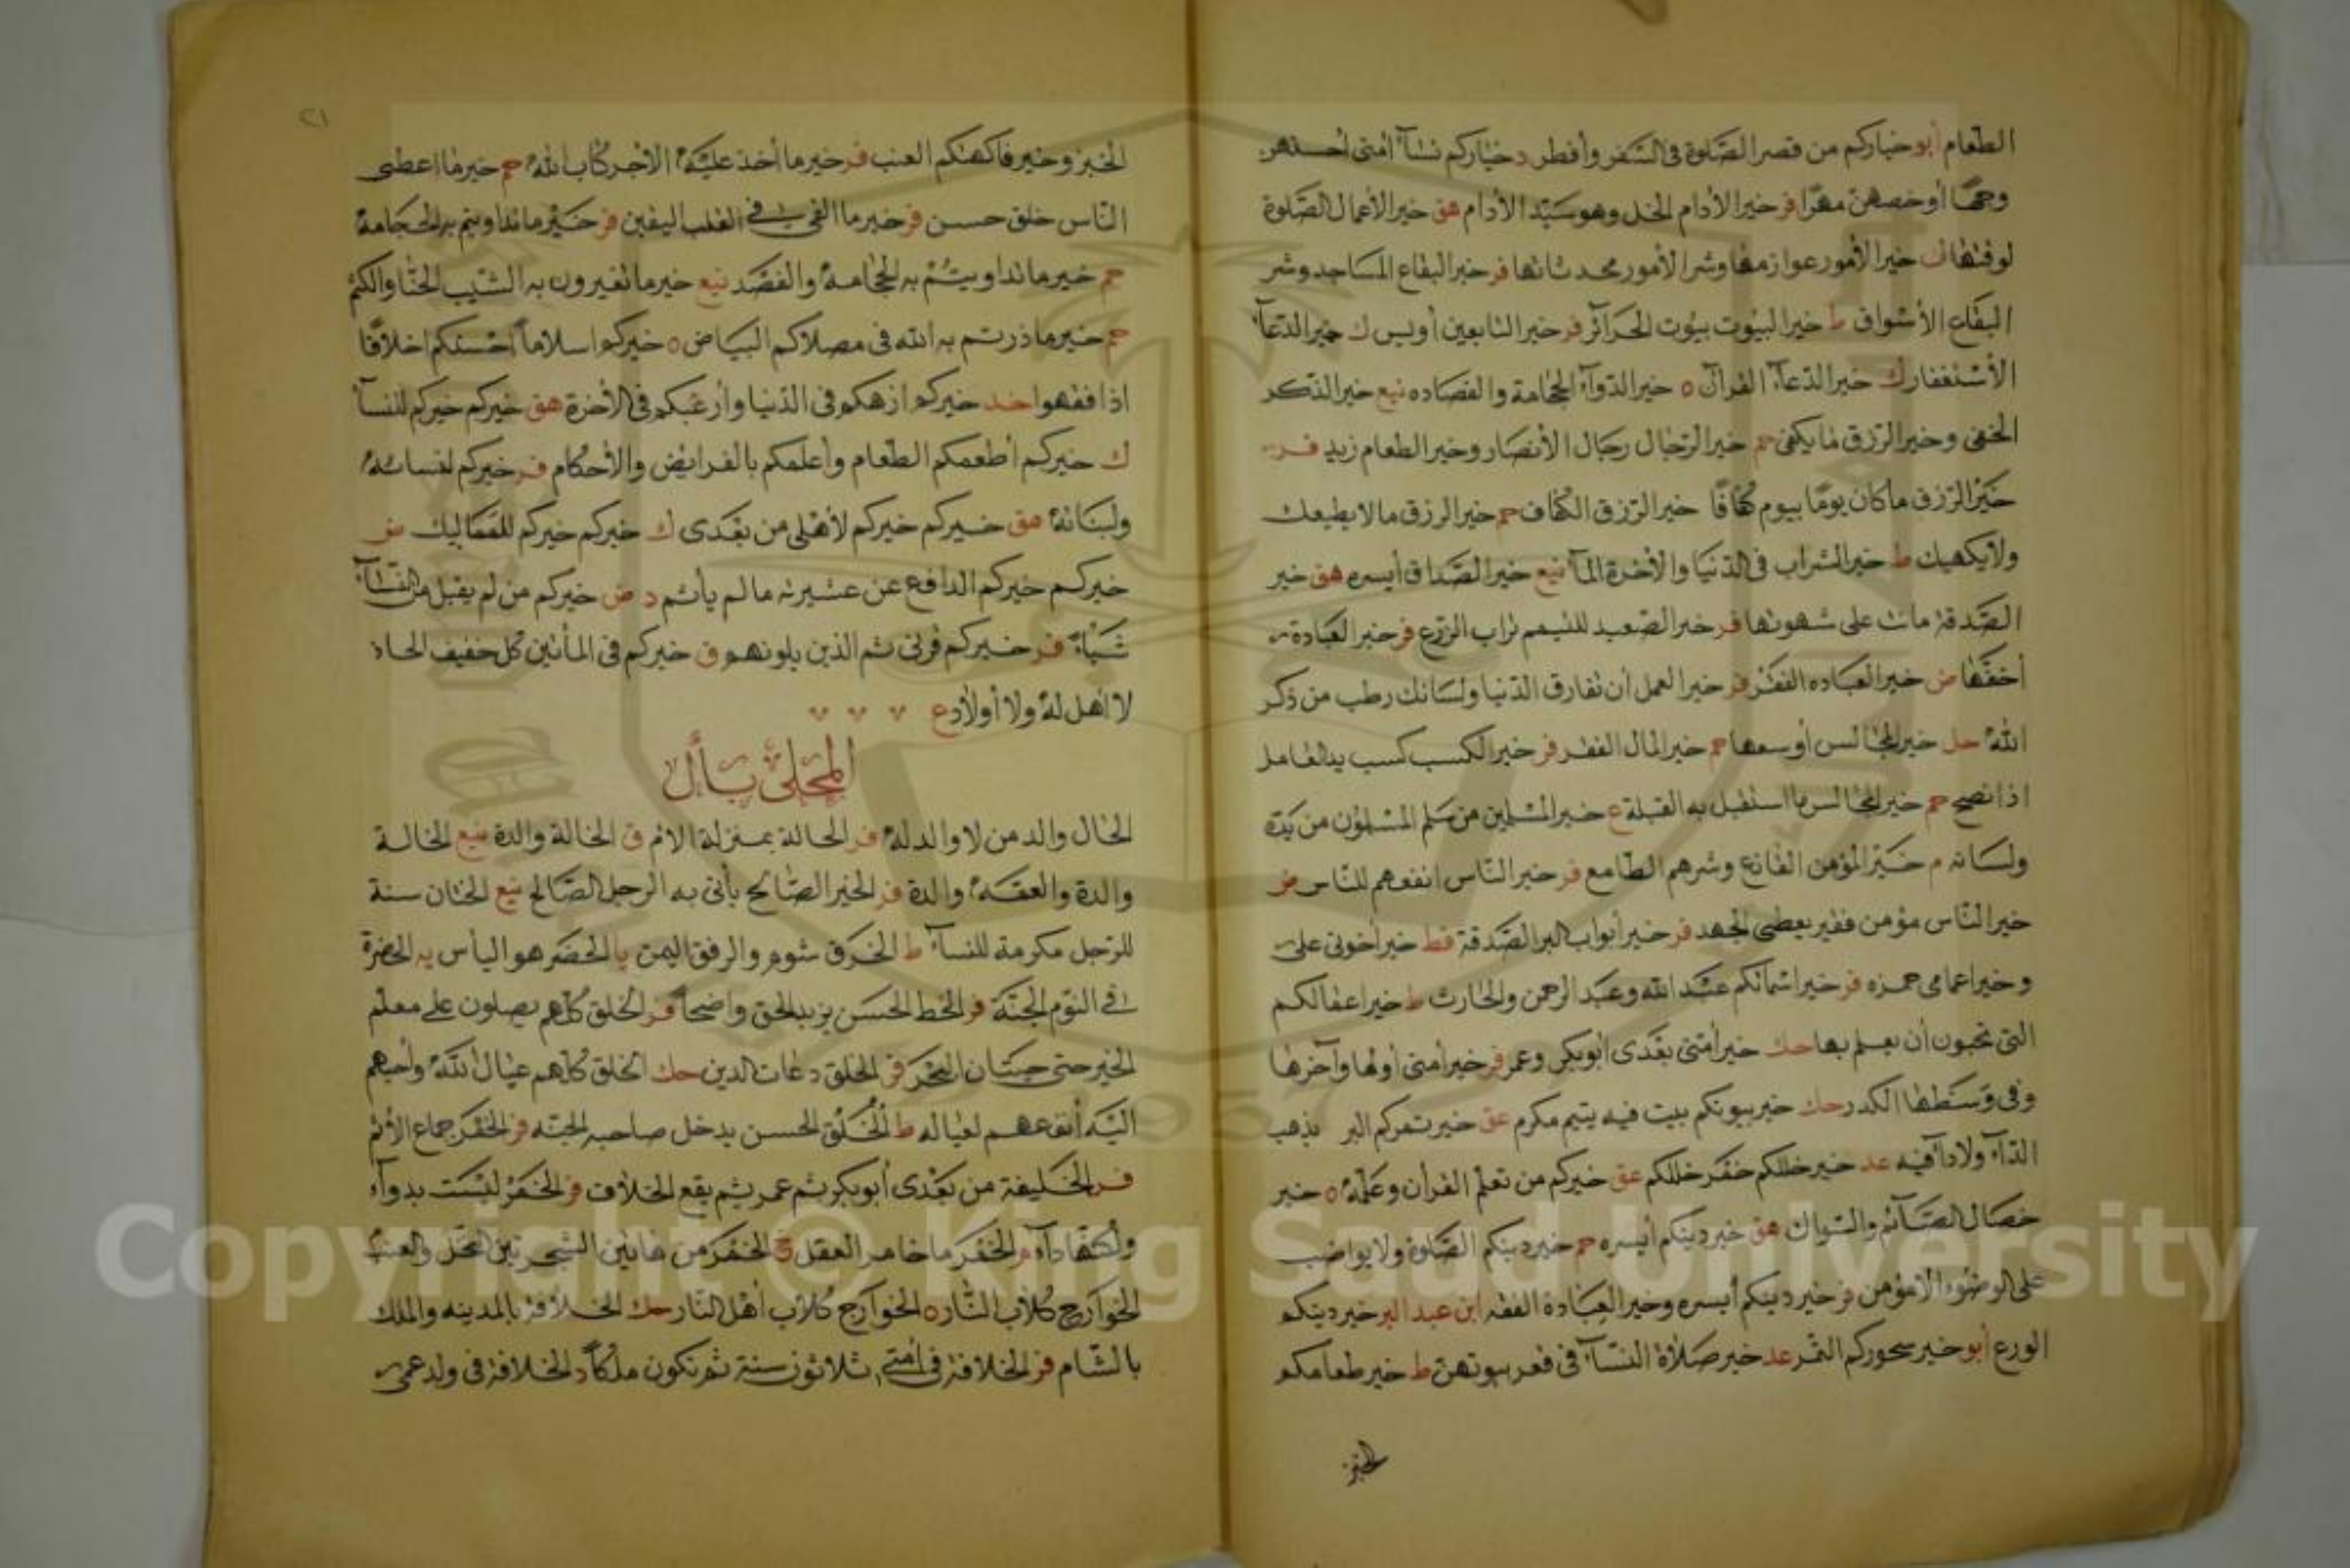 الطعام أبو خياركم من قصر الصّلوة فى السّفر وأفطر د خياركم نسآء أمتى أحسنهن
وجهًا أو خصهن مهرًا فر خير الأدام الخل وهو سيّد الأدام هق خير الأعمال الصّلوة
لوقتها ك خير الأمور عوازمها وشر الأمور محدثاتها فر خير البقاع المساجد وشر
البقاع الأسواق ط خير البيوت بيوت الحرآئر فر خير التابعين أويس ك خير الدّعآء
الأستغفار ك خير الدّعآء القرآن ه خير الدّوآء الحجامة والفصاده نيع خير الذكر
الخفى وخير الرّزق ما يكفى حم خير الرّجال رجال الأنصار وخير الطعام زيد فر
خير الرّزق ما كان يومًا بيوم كفافًا خير الرّزق الكفاف حم خير الرزق ما لا يطيعك
ولا يكهيك ط خير الشراب فى الدّنيا والأخرة المآء نيع خير الصّداق أيسره هق خير
الصّدقة مات على شهوتها فر خير الصّعيد للتيمم تراب الزرع فر خير العيادة
أخفّها ض خير العباده الفقر فر خير العمل أن تفارق الدّنيا ولسانك رطب من ذكر
الله حل خير المجالس أوسعها حم خير المال الفقر فر خير الكسب كسب يد العامل
اذا نصح حم خير المجالس ما استقبل به القبلة ع خير المسلمين من سلم المسلمون من يده
ولسانه م خير المؤمن القانع وشرهم الطامع فر خير النّاس انفعهم للنّاس ض
خير النّاس مؤمن فقير يعطى الجهد فر خير أبواب البر الصّدقة قط خير أخوتى على
وخير اعمامى حمزه فر خير اسمائكم عبد الله وعبد الرحمن والحارث ط خير اعمالكم
التى تحبون أن يعلم بها حك خير أمتى بعدى أبوبكر وعمر فر خير أمتى أولها وآخرها
وفى وسطها الكدر حك خير بيوتكم بيت فيه يتيم مكرم عق خير تمركم البر يذهب
الدّآء ولا دآء فيه عد خير خلكم خمر خللكم عق خيركم من تعلم القرأن وعلمه ه خير
خصال الصّآئم والسّواك هق خير دينكم أيسره حم خير دينكم الصّلوة ولا يواضب
على الوضوء الا مؤمن فر خير دينكم أيسره وخير العبادة الفقه ابن عبد البر خير دينكم
الورع أبو خير سحوركم التمر عد خير صلاة النسآء فى قعر بيوتهن ط خير طعامكم
الخبز
٢١
الخبز وخير فاكهتكم العنب فر خير ما أخذ عليه الأجر كتاب الله حم خير ما اعطى
النّاس خلق حسن فر خير ما القى فى القلب اليقين فر خير ما تداويتم به الحجامة
حم خير ما تداويتم به الحجامة والفصد نيع خير ما تغيرون به الشيب الحنّا والكتم
حم خير ما ذرتم به الله فى مصلاكم البياض ه خيركم اسلاماً احسنكم اخلاقا
اذا فقهوا خد خيركم ازهدكم فى الدّنيا وأرغبكم فى الأخرة هق خيركم خيركم للنسآء
ك خيركم أطعمكم الطّعام وأعلمكم بالفرايض والأحكام فر خيركم لنسائه
ولبناته هق خيركم خيركم لأهلى من بعدى ك خيركم خيركم للمماليك ض
خيركم خيركم الدافع عن عشيرته ما لم يأثم د ض خيركم من لم يقبل من النّسآء
شيأ فر خيركم قرنى ثم الذين يلونهم ق خيركم فى المأتين كل خفيف الحاذ
لا اهل له ولا أولاد ع
المحلى بأل
الخال والد من لا والد له فر الخالة بمنزلة الام ق الخالة والدة نيع الخالة
والدة والعمّة والدة فر الخير الصّالح يأتى به الرجل الصّالح نيع الختان سنة
للرّجل مكرمة للنسآء ط الخرق شوم والرفق اليمن يا الخضر هو الياس يه الخضرة
فى النوم الجنّة فر الخط الحسن يزيد الحق واضحاً فر الخلق كلهم يصلون على معلم
الخير حتى حيتان البحر فر الخلق دعات الدين حك الخلق كلهم عيال الله وأحبهم
اليّه أنفعهم لعياله ط الخلق الحسن يدخل صاحبه الجنّه فر الخمر جماع الأثم
فر الخليفة من بعدى أبوبكر ثم عمر ثم يقع الخلاف فر الخمر ليست بدوآء
ولكنها دآء م الخمر ما خامر العقل خ الخمر من هاتين الشجرتين النخل والعنب
الخوارج كلاب النّار ه الخوارج كلاب أهل النار حك الخلافة بالمدينه والملك
بالشّام فر الخلافة فى أمتى ثلاثون سنة ثم تكون ملكاً د الخلافة فى ولد عمى
Copyright © King Saud University
1957